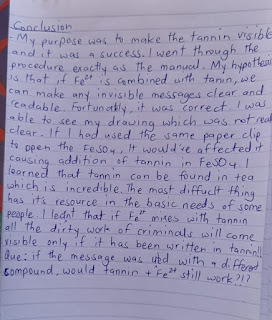 Conclusion
- My purpose was to make the tannin visible
and it was a success. I went through the
procedure exactly as the manual. My hypothesis
is that if Fe²⁺ is combined with tanin, we
can make any invisible messages clear and
readable. Fortunatly, it was correct. I was
able to see my drawing which was not real
clear. If I had used the same paper clip
to open the FeSO4, It would've affected it
causing addition of tannin in FeSO4. I
learned that tannin can be found in tea
which is incredible. The most difficult thing
has it's resource in the basic needs of some
people. I leant that if Fe²⁺ mixes with tannin
all the dirty work of criminals will come
visible only if it has been written in tannin!!
Que: if the message was with a different
compound, would tannin + Fe²⁺ still work?!?